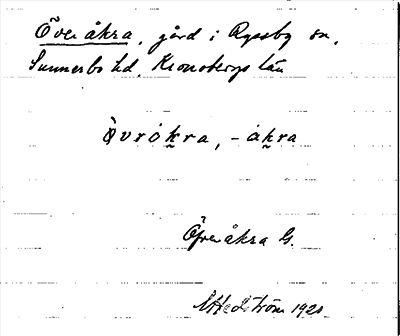 Överåkra, gård i Ryssby sn,
Sunnerbo hd, Kronobergs län
Òvrók̰ra, -ák̰ra
Öfveråkra G.
Hedström 1921